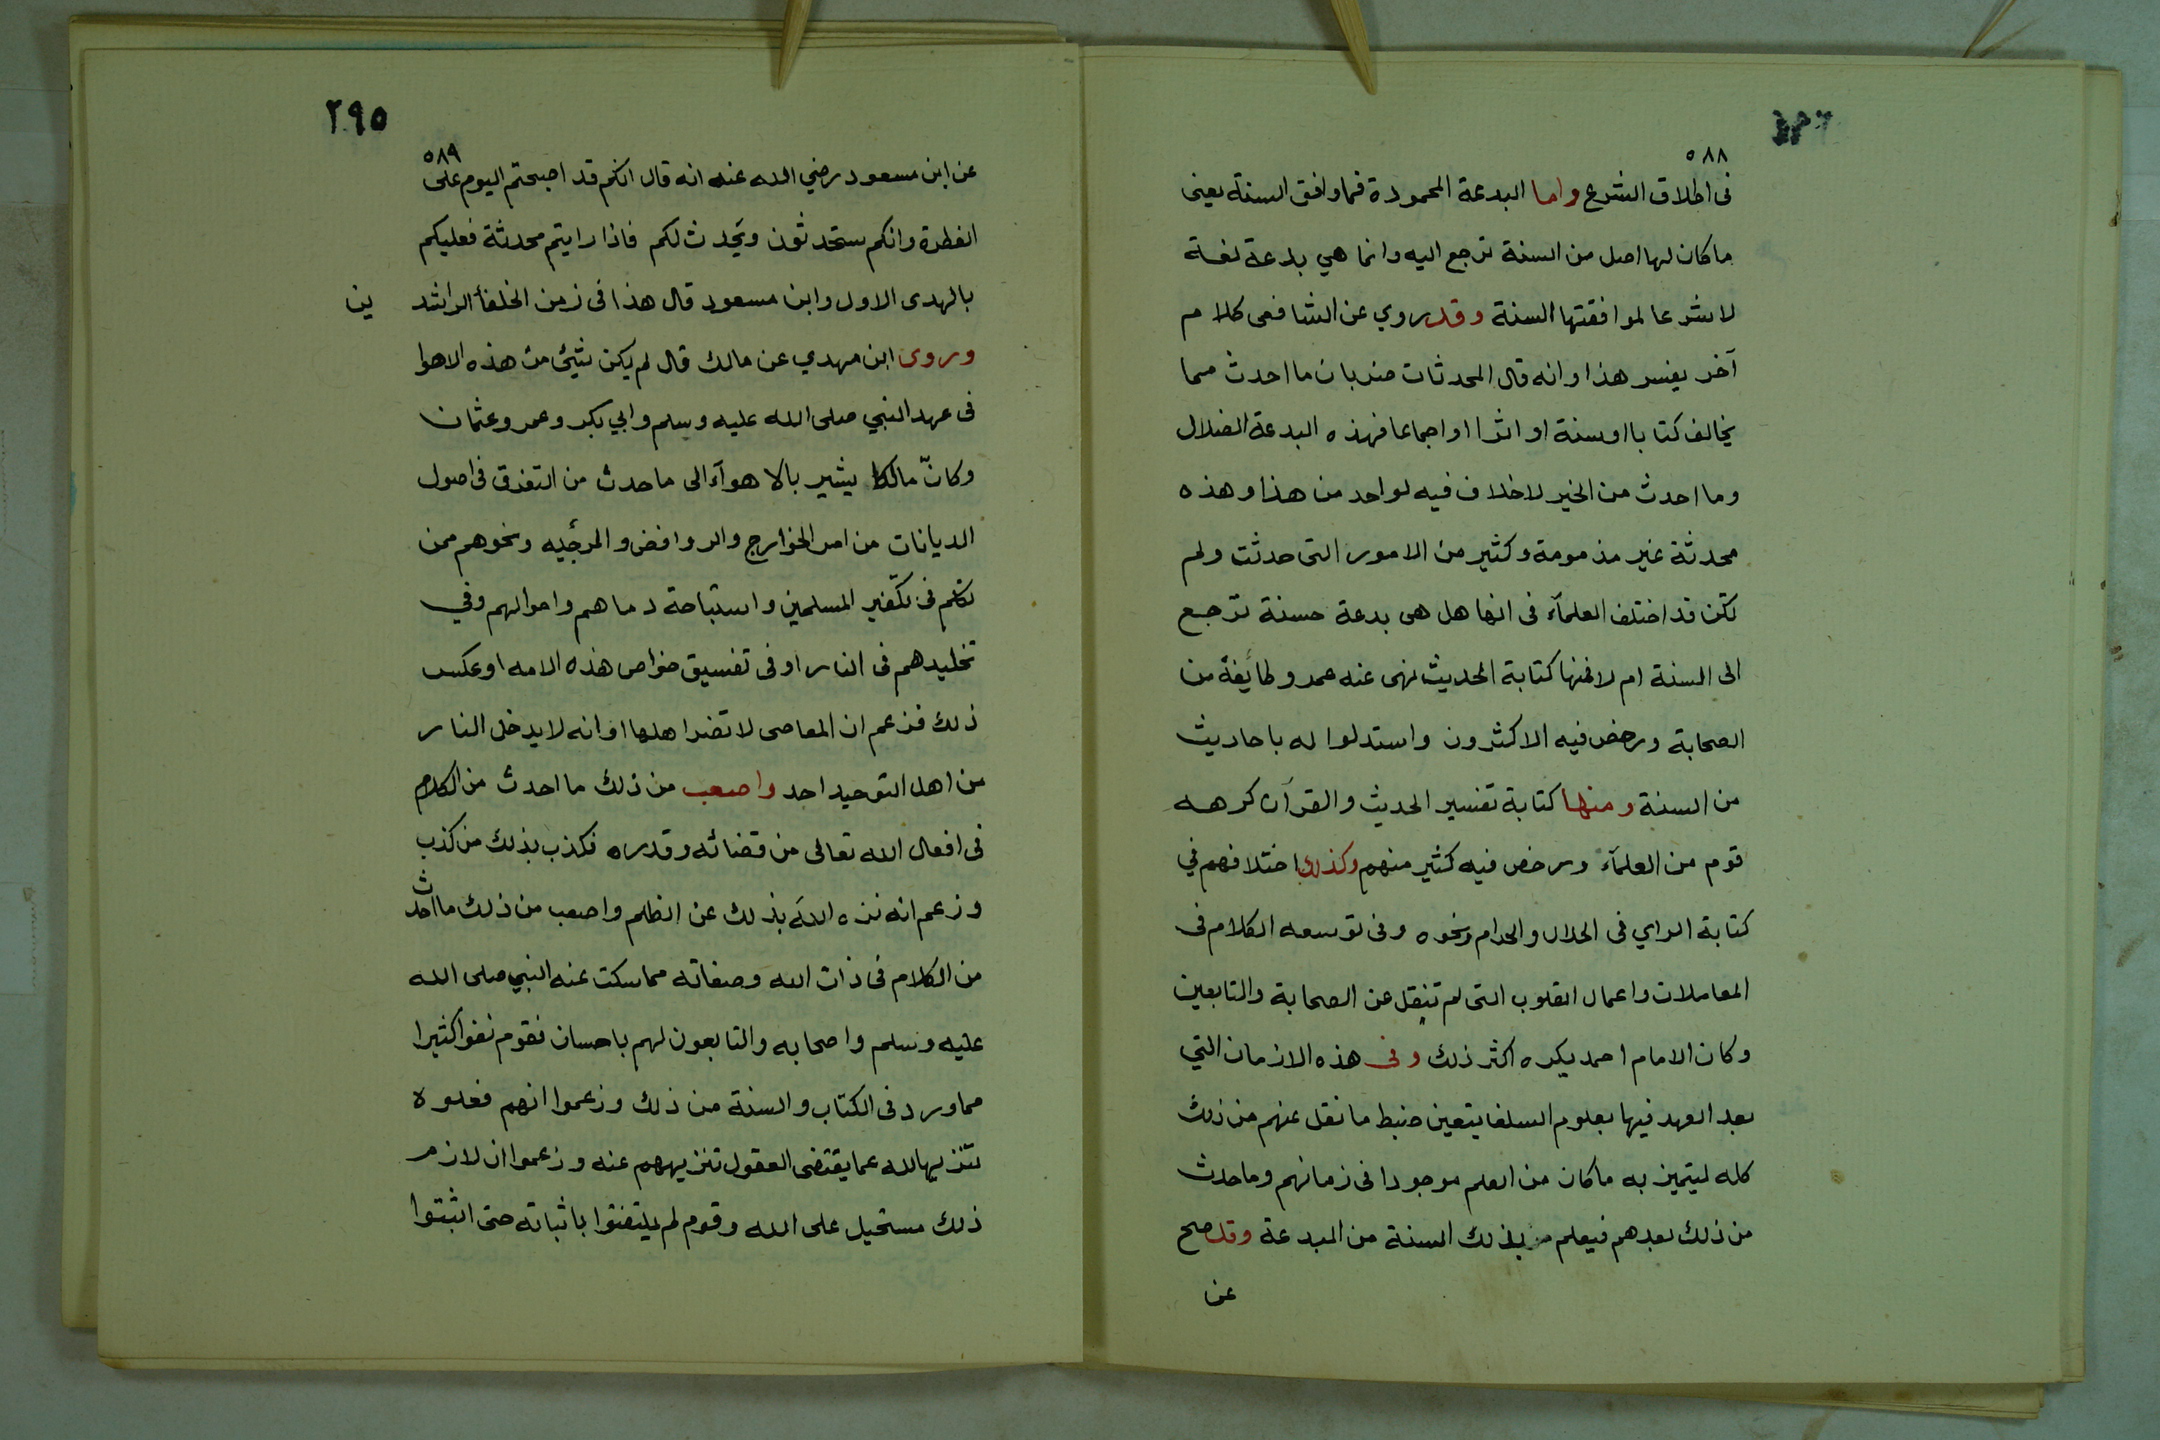 ٥٨٨
فى اطلاق الشرع واما البدعة المحمودة فما وافق السنة يعنى
ما كان لها اصل من السنة ترجع اليه وانما هي بدعة لغة
لا شرعا لموافقتها السنة وقد روي عن الشافعى كلام
آخر يفسر هذا وانه قال المحدثات ضربان ما احدث مما
يخالف كتابا اوسنة او اثرا او اجماعا فهذه البدعة الضلال
وما احدث من الخير لا خلاف فيه لواحد من هذا وهذه
محدثة غير مذمومة وكثير من الامور التى حدثت ولم
تكن قد اختلف العلمآء فى انها هل هى بدعة حسنة ترجع
الى السنة ام لا فمنها كتابة الحديث نهى عنه عمر وطايفة من
الصحابة ورخص فيه الاكثرون واستدلوا له باحاديث
من السنة ومنها كتابة تفسير الحديث والقرآن كرهه
قوم من العلمآء ورخص فيه كثير منهم وكذلك اختلافهم في
كتابة الراي فى الحلال والحرام ونحوه وفى توسعه الكلام فى
المعاملات واعمال القلوب التى لم تنقل عن الصحابة والتابعين
وكان الامام احمد يكره اكثر ذلك وفى هذه الازمان التي
بعد العهد فيها بعلوم السلف يتعين ضبط ما نقل عنهم من ذلك
كله ليتميز به ما كان من العلم موجودا فى زمانهم وما حدث
من ذلك بعدهم فيعلم بذلك السنة من البدعة وقد صح
عن
٢٩٥
٥٨٩
عن ابن مسعود رضي الله عنه انه قال انكم قد اصبحتم اليوم على
الفطرة وانكم ستحدثون ويحدث لكم فاذا رايتم محدثة فعليكم
بالهدى الاول وابن مسعود قال هذا فى زمن الخلفأ الراشد ين
وروى ابن مهدي عن مالك قال لم يكن شيئ من هذه الاهوا
فى عهد النبي صلى الله عليه وسلم وابي بكر وعمر وعثمان
وكانّ مالكا يشير بالاهوآء الى ما حدث من التفرق فى اصول
الديانات من امر الخوارج والروافض والمرجئيه ونحوهم ممن
تكلم فى تكفير المسلمين واستباحة دماهم واموالهم وفي
تخليدهم فى النار او فى تفسيق خواص هذه الامه او عكس
ذلك فزعم ان المعاصى لا تضر اهلها او انه لا يدخل النار
من اهل التوحيد احد واصعب من ذلك ما احدث من الكلام
فى افعال الله تعالى من قضائه وقدره فكذب بذلك من كذب
وزعم انه نزه الله بذلك عن الظلم واصعب من ذلك ما احدث
من الكلام فى ذات الله وصفاته مما سكت عنه النبي صلى الله
عليه وسلم واصحابه والتابعون لهم باحسان فقوم نفوا كثيرا
مما ورد فى الكتاب والسنة من ذلك وزعموا انهم فعلوه
تنزيها لله عما يقتضى العقول تنزيهه عنه وزعموا ان لازم
ذلك مستحيل على الله وقوم لم يلتفتوا باثباته حتى اثبتوا